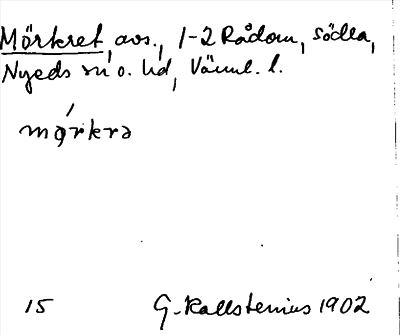 Mörkret, avs., 1-2 Rådom, södra,
Nyeds sn o. hd, Värml. l.
mǿ̨rkrə
15 G. Kallstenius 1902